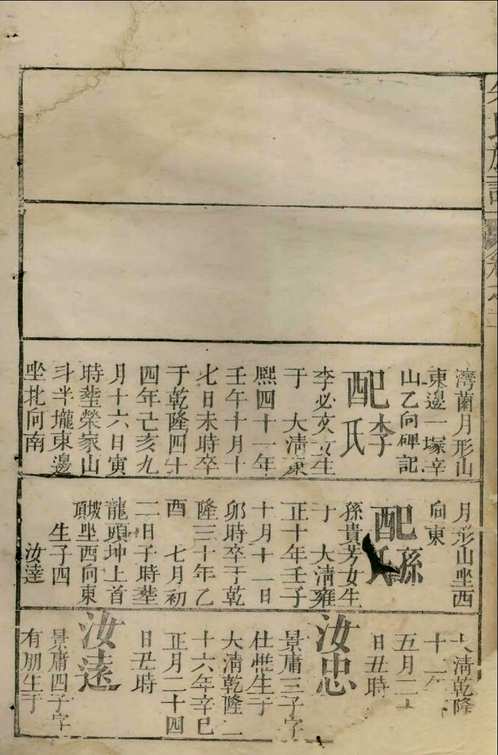 灣蘭月形山
東邊一塚辛
山乙向碑記
配李氏
李必文女生
于 大清康
熙四十一年
壬午十月十
七日未時卒
于乾隆四十
四年己亥九
月十六日寅
時塟榮家山
斗半壠東邊
坐北向南
月形山坐西
向東
配孫氏
孫貴芳女生
于 大清雍
正十年壬子
十月十一日
卯時卒于乾
隆三十年乙
酉 七月初
二日子時塟
龍頭坤上首
坐西向東
生子四
汝達
大清乾隆
十二年
五月二十
日丑時
汝忠
景庸三子字
仕惟生于
大清乾隆二
十六年辛巳
正月二十四
日丑時
汝遠
景庸四子字
有朋生于